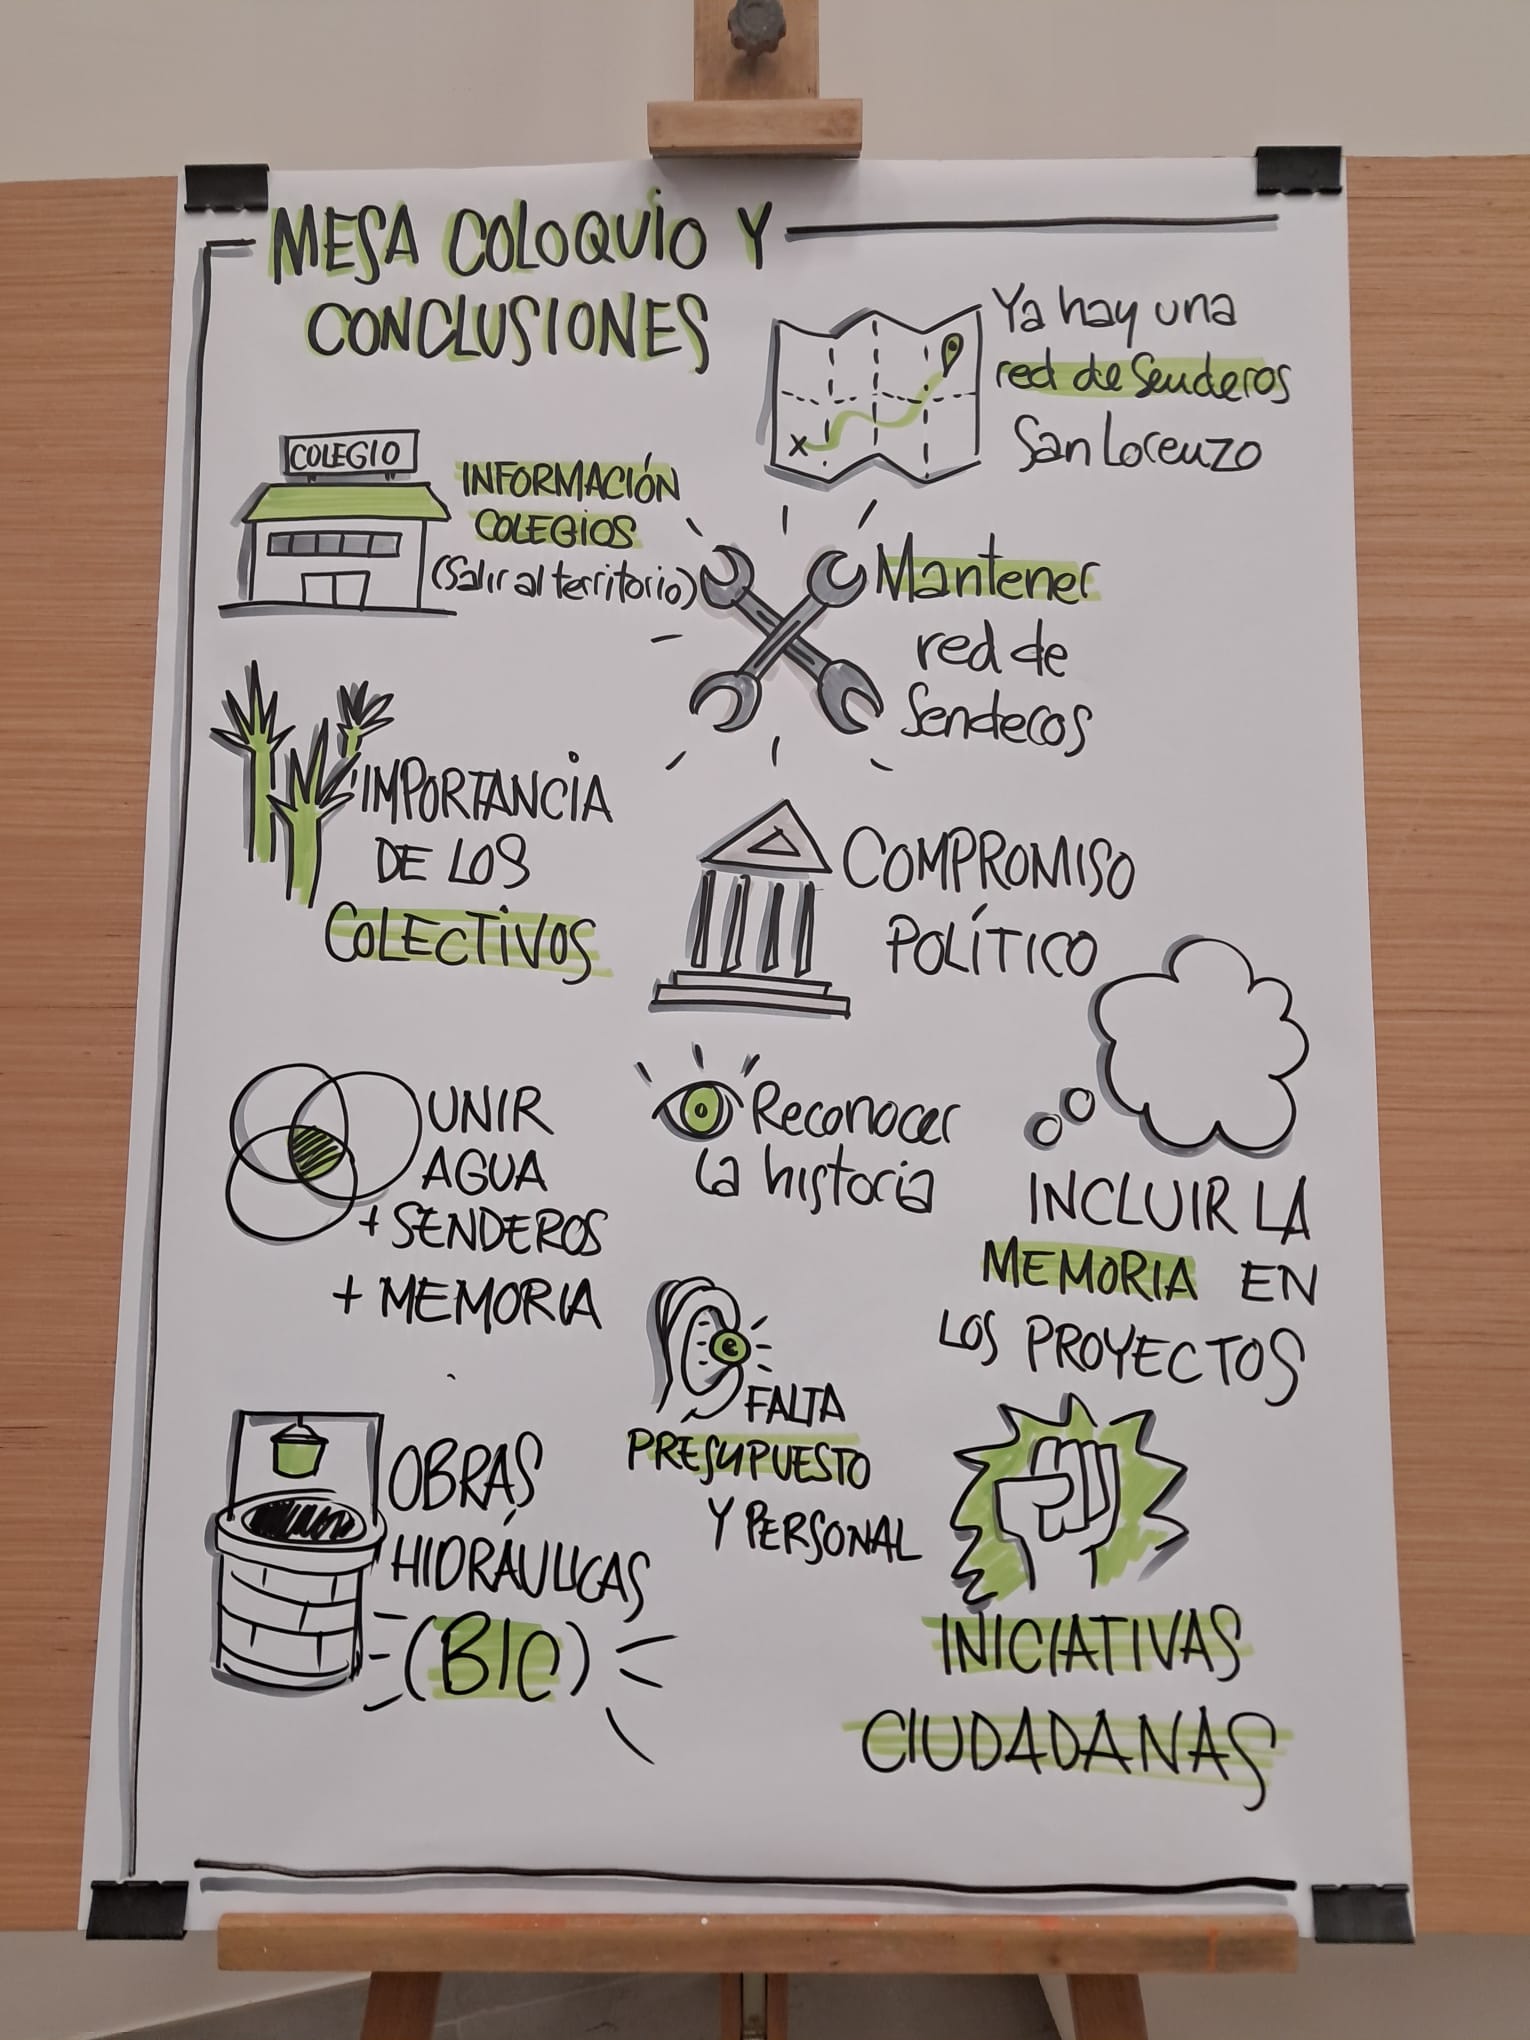 MESA COLOQUIO Y
CONCLUSIONES
Ya hay una
red de Senderos
San Lorenzo
COLEGIO
INFORMACIÓN
COLEGIOS
(Salir al territorio)
Mantener
red de
Senderos
IMPORTANCIA
DE LOS
COLECTIVOS
COMPROMISO
POLÍTICO
UNIR
AGUA
+ SENDEROS
+ MEMORIA
Reconocer
la historia
INCLUIR LA
MEMORIA EN
LOS PROYECTOS
€
FALTA
PRESUPUESTO
Y PERSONAL
OBRAS
HIDRÁULICAS
(BIC)
INICIATIVAS
CIUDADANAS